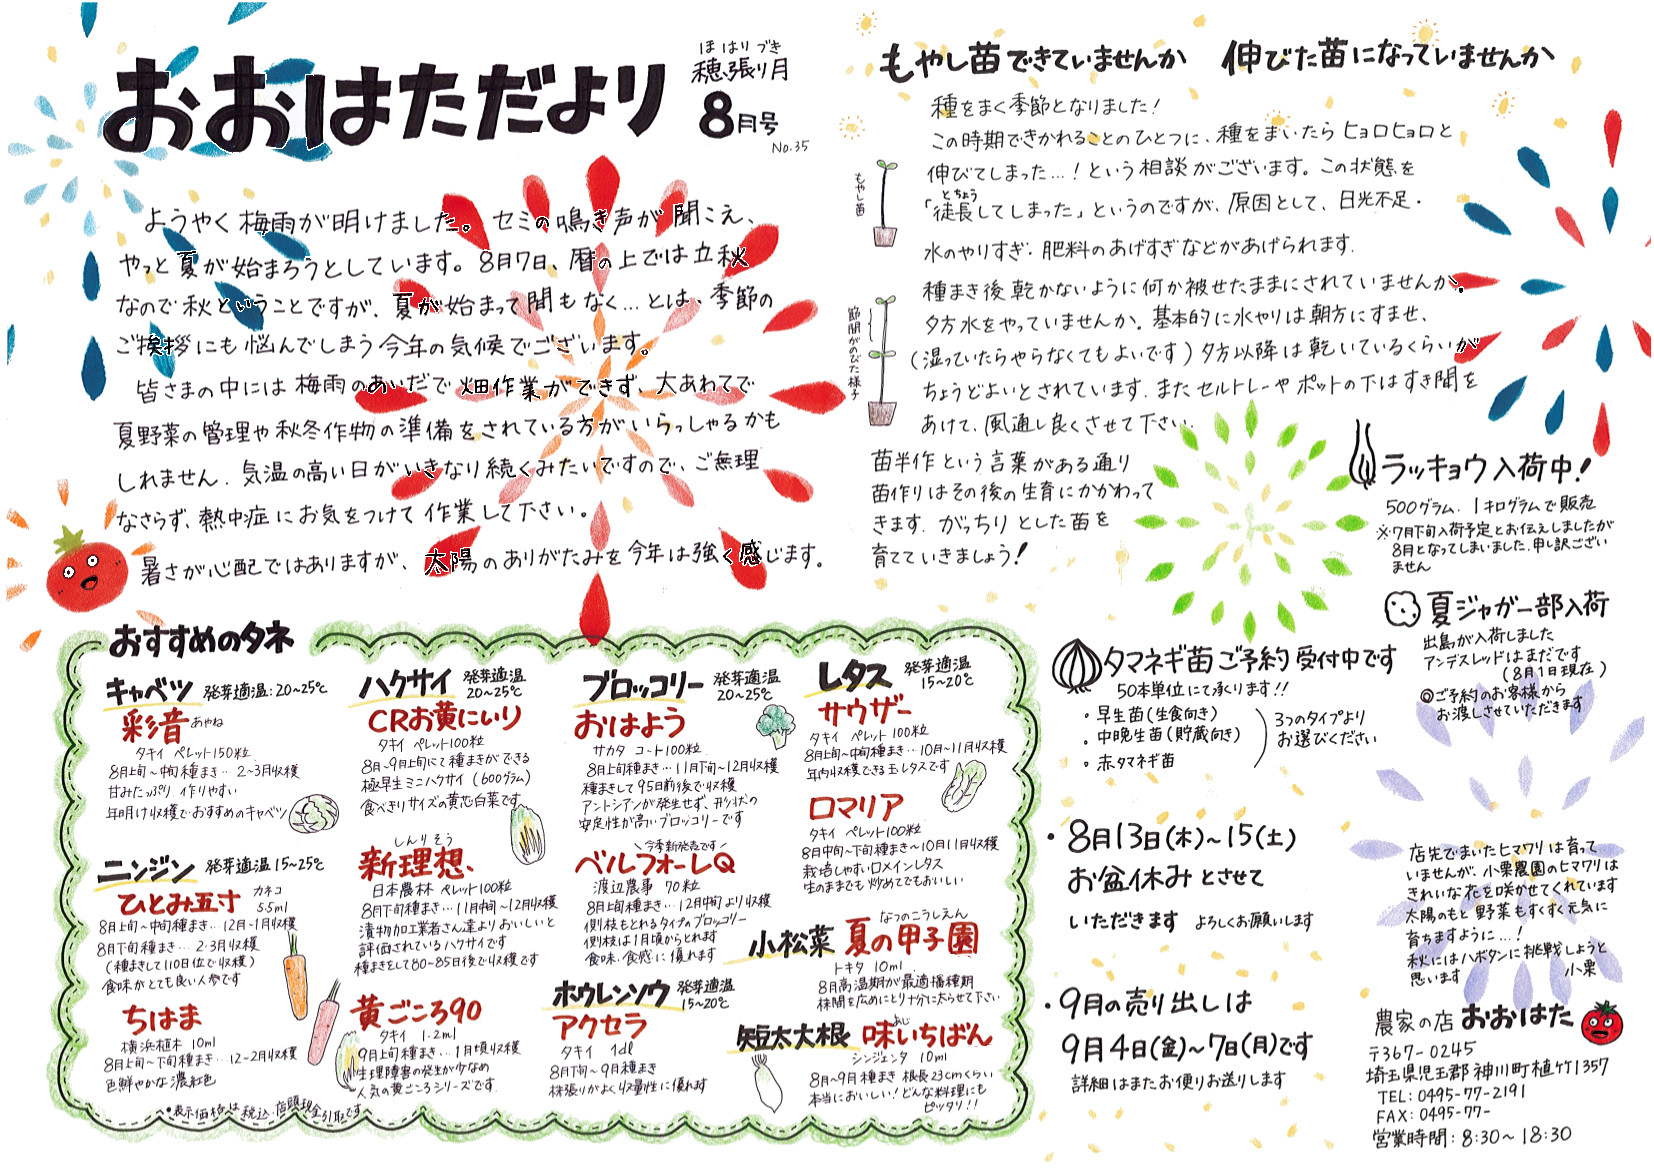 おおはただより
ほはりづき
穂張り月
8月号
No.35
ようやく梅雨が明けました。セミの鳴き声が聞こえ、
やっと夏が始まろうとしています。8月7日、暦の上では立秋
なので秋ということですが、夏が始まって間もなく…とは、季節の
ご挨拶にも悩んでしまう今年の気候でございます。
皆さまの中には梅雨のあいだで畑作業ができず、大あわてで
夏野菜の管理や秋冬作物の準備をされている方がいらっしゃるかも
しれません。気温の高い日がいきなり続くみたいですので、ご無理
なさらず、熱中症にお気をつけて作業して下さい。
暑さが心配ではありますが、太陽のありがたみを今年は強く感じます。
もやし苗できていませんか 伸びた苗になっていませんか
種をまく季節となりました!
この時期できかれることのひとつに、種をまいたらヒョロヒョロと
伸びてしまった…!という相談がございます。この状態を
とちょう
「徒長してしまった」というのですが、原因として、日光不足・
水のやりすぎ・肥料のあげすぎなどがあげられます。
種まき後乾かないように何か被せたままにされていませんか。
夕方水をやっていませんか。基本的に水やりは朝方にすませ、
(湿っていたらやらなくてもよいです)夕方以降は乾いているくらいが
ちょうどよいとされています。またセルトレーやポットの下はすき間を
あけて、風通し良くさせて下さい。
もやし苗
節間がのびた様子
苗半作という言葉がある通り
苗作りはその後の生育にかかわって
きます。がっちりとした苗を
育てていきましょう!
ラッキョウ入荷中!
500グラム、1キログラムで販売
※7月下旬入荷予定とお伝えしましたが
8月となってしまいました。申し訳ござい
ません
夏ジャガ一部入荷
出島が入荷しました
アンデスレッドはまだです
(8月1日現在)
◎ご予約のお客様から
お渡しさせていただきます
タマネギ苗ご予約受付中です
50本単位にて承ります!!
・早生苗(生食向き)
・中晩生苗(貯蔵向き)
・赤タマネギ苗
3つのタイプより
お選びください
おすすめのタネ
キャベツ 発芽適温:20~25℃
彩音 あやね
タキイ ペレット150粒
8月上旬~中旬種まき…2~3月収穫
甘みたっぷり 作りやすい
年明け収穫でおすすめのキャベツ
ニンジン 発芽適温15~25℃
ひとみ五寸 カネコ
5.5ml
8月上旬~中旬種まき…12月~1月収穫
8月下旬種まき…2・3月収穫
(種まきして110日位で収穫)
食味がとても良い人参です
ちはま
横浜植木 10ml
8月上旬~下旬種まき…12~2月収穫
色鮮やかな濃紅色
ハクサイ 発芽適温
20~25℃
CRお黄にいり
タキイ ペレット100粒
8月~9月上旬にて種まきができる
極早生ミニハクサイ(600グラム)
食べきりサイズの黄芯白菜です
しんりそう
新理想
日本農林 ペレット100粒
8月下旬種まき…11月中旬~12月収穫
漬物加工業者さん達よりおいしいと
評価されているハクサイです
種まきをして80-85日後で収穫です
黄ごころ90
タキイ 1.2ml
9月上旬種まき…1月頃収穫
生理障害の発生が少なめ
人気の黄ごころシリーズです
ブロッコリー 発芽適温
20~25℃
おはよう
サカタ コート100粒
8月上旬種まき…11月下旬~12月収穫
種まきして95日前後で収穫
アントシアンが発生せず、形状の
安定性が高いブロッコリーです
今季新発売です
ベルフォーレQ
渡辺農事 70粒
8月上旬種まき…12月中旬より収穫
側枝もとれるタイプのブロッコリー
側枝は1月頃からとれます
食味・食感に優れます
ホウレンソウ 発芽適温
15~20℃
アクセラ
タキイ 1dl
8月下旬~9月種まき
株張りがよく収量性に優れます
レタス 発芽適温
15~20℃
サウザー
タキイ ペレット100粒
8月上旬~中旬種まき…10月~11月収穫
年内収穫できる玉レタスです
ロマリア
タキイ ペレット100粒
8月中旬~下旬種まき~10月11月収穫
栽培しやすいロメインレタス
生のままでも炒めてでもおいしい
なつのこうしえん
小松菜 夏の甲子園
トキタ 10ml
8月高温期が最適播種期
株間を広めにとり十分に太らせて下さい
あじ
短太大根 味いちばん
シンジェンタ 10ml
8月~9月種まき 根長23cmくらい
本当においしい!どんな料理にも
ピッタリ!!
●表示価格は税込・店頭現金引取です
・8月13日(木)~15(土)
お盆休みとさせて
いただきます よろしくお願いします
・9月の売り出しは
9月4日(金)~7日(月)です
詳細はまたお便りお送りします
店先でまいたヒマワリは育って
いませんが、小栗農園のヒマワリは
きれいな花を咲かせてくれています
太陽のもと野菜もすくすく元気に
育ちますように…!
秋にはハボタンに挑戦しようと
思います 小栗
農家の店 おおはた
〒367-0245
埼玉県児玉郡神川町植竹1357
TEL:0495-77-2191
FAX:0495-77-
営業時間:8:30~18:30